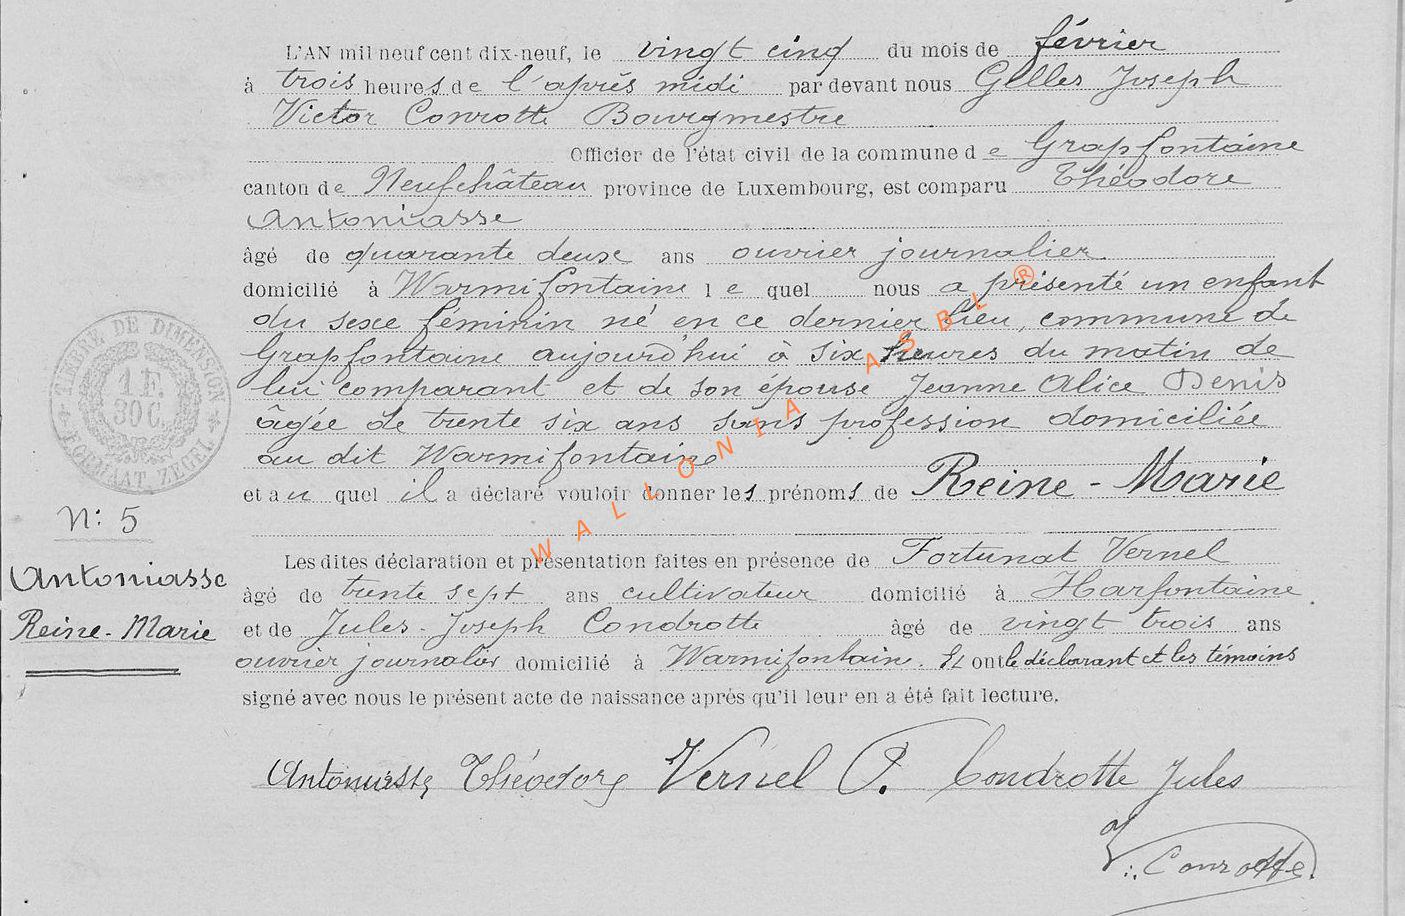 L'AN mil neuf cent dix-neuf, le vingt cinq du mois de février
à trois heures de l'après midi par devant nous Gilles Joseph
Victor Conrotte Bourgmestre
Officier de l'état civil de la commune de Grapfontaine
canton de Neufchâteau province de Luxembourg, est comparu Théodore
Antoniasse
âgé de quarante deux ans ouvrier journalier
domicilié à Warmifontaine le quel nous a présenté un enfant
du sexe féminin né en ce dernier lieu, commune de
Grapfontaine aujourd'hui à six heures du matin de
lui comparant et de son épouse Jeanne Alice Denis
âgée de trente six ans sans profession domiciliée
au dit Warmifontaine
et au quel il a déclaré vouloir donner les prénoms de Reine-Marie
Les dites déclaration et présentation faites en présence de Fortunat Vernel
âgé de trente sept ans cultivateur domicilié à Harfontaine
et de Jules-Joseph Condrotte âgé de vingt trois ans
ouvrier journalier domicilié à Warmifontaine. Et ont le déclarant et les témoins
signé avec nous le présent acte de naissance après qu'il leur en a été fait lecture.
Antoniasse Théodore Vernel F. Condrotte Jules
V. Conrotte.
TIMBRE DE DIMENSION
1 F.
30 C.
FORMAAT ZEGEL
N: 5
Antoniasse
Reine-Marie
WALLONIA ASBL ®